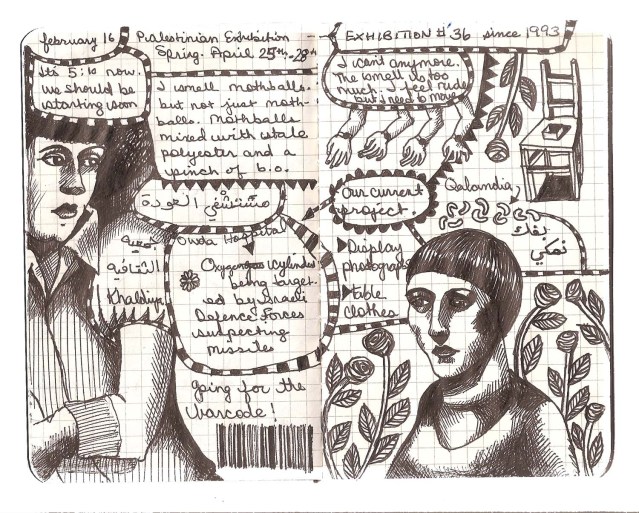 february 16
Palestinian Exhibition
Spring. April 25th-28th
Its 5:10 now.
we should be
starting soon
I smell mothballs.
but not just moth-
balls. Mothballs
mixed with stale
polyester and a
pinch of b.o.
مستشفى العودة
Hospital
جمعية
الثقافية
Khaldiya
being target-
ed by Israeli
Defence Forces
suspecting
missiles
going for the
barcode!
EXHIBITION # 36 since 1993
I cant anymore.
The smell is too
much. I feel rude
but I need to move
Our current
project.
Display
photograph
Table
clothes
Qalandia
نحكي